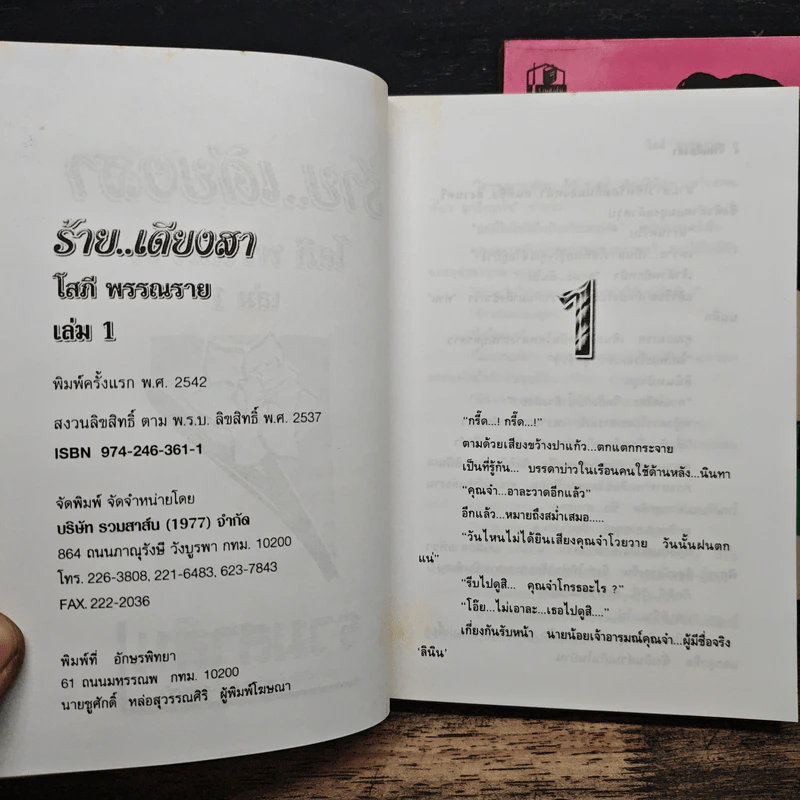 ร้าย..เดียงสา
โสภี พรรณราย
เล่ม 1
พิมพ์ครั้งแรก พ.ศ. 2542
สงวนลิขสิทธิ์ ตาม พ.ร.บ. ลิขสิทธิ์ พ.ศ. 2537
ISBN 974-246-361-1
จัดพิมพ์ จัดจำหน่ายโดย
บริษัท รวมสาส์น (1977) จำกัด
864 ถนนภาณุรังษี วังบูรพา กทม. 10200
โทร. 226-3808, 221-6483, 623-7843
FAX. 222-2036
พิมพ์ที่ อักษรพิทยา
61 ถนนมหรรณพ กทม. 10200
นายชูศักดิ์ หล่อสุวรรณศิริ ผู้พิมพ์โฆษณา
1
"กรี๊ด...! กรี๊ด...!"
ตามด้วยเสียงขว้างปาแก้ว...ตกแตกกระจาย
เป็นที่รู้กัน... บรรดาบ่าวในเรือนคนใช้ด้านหลัง...นินทา
"คุณจ๋า...อาละวาดอีกแล้ว"
อีกแล้ว...หมายถึงสม่ำเสมอ.....
"วันไหนไม่ได้ยินเสียงคุณจ๋าโวยวาย วันนั้นฝนตก
แน่"
"รีบไปดูสิ... คุณจ๋าโกรธอะไร ?"
"โอ๊ย...ไม่เอาละ...เธอไปดูสิ...."
เกี่ยงกันรับหน้า นายน้อยเจ้าอารมณ์คุณจ๋า...ผู้มีชื่อจริง
'ลินิน'